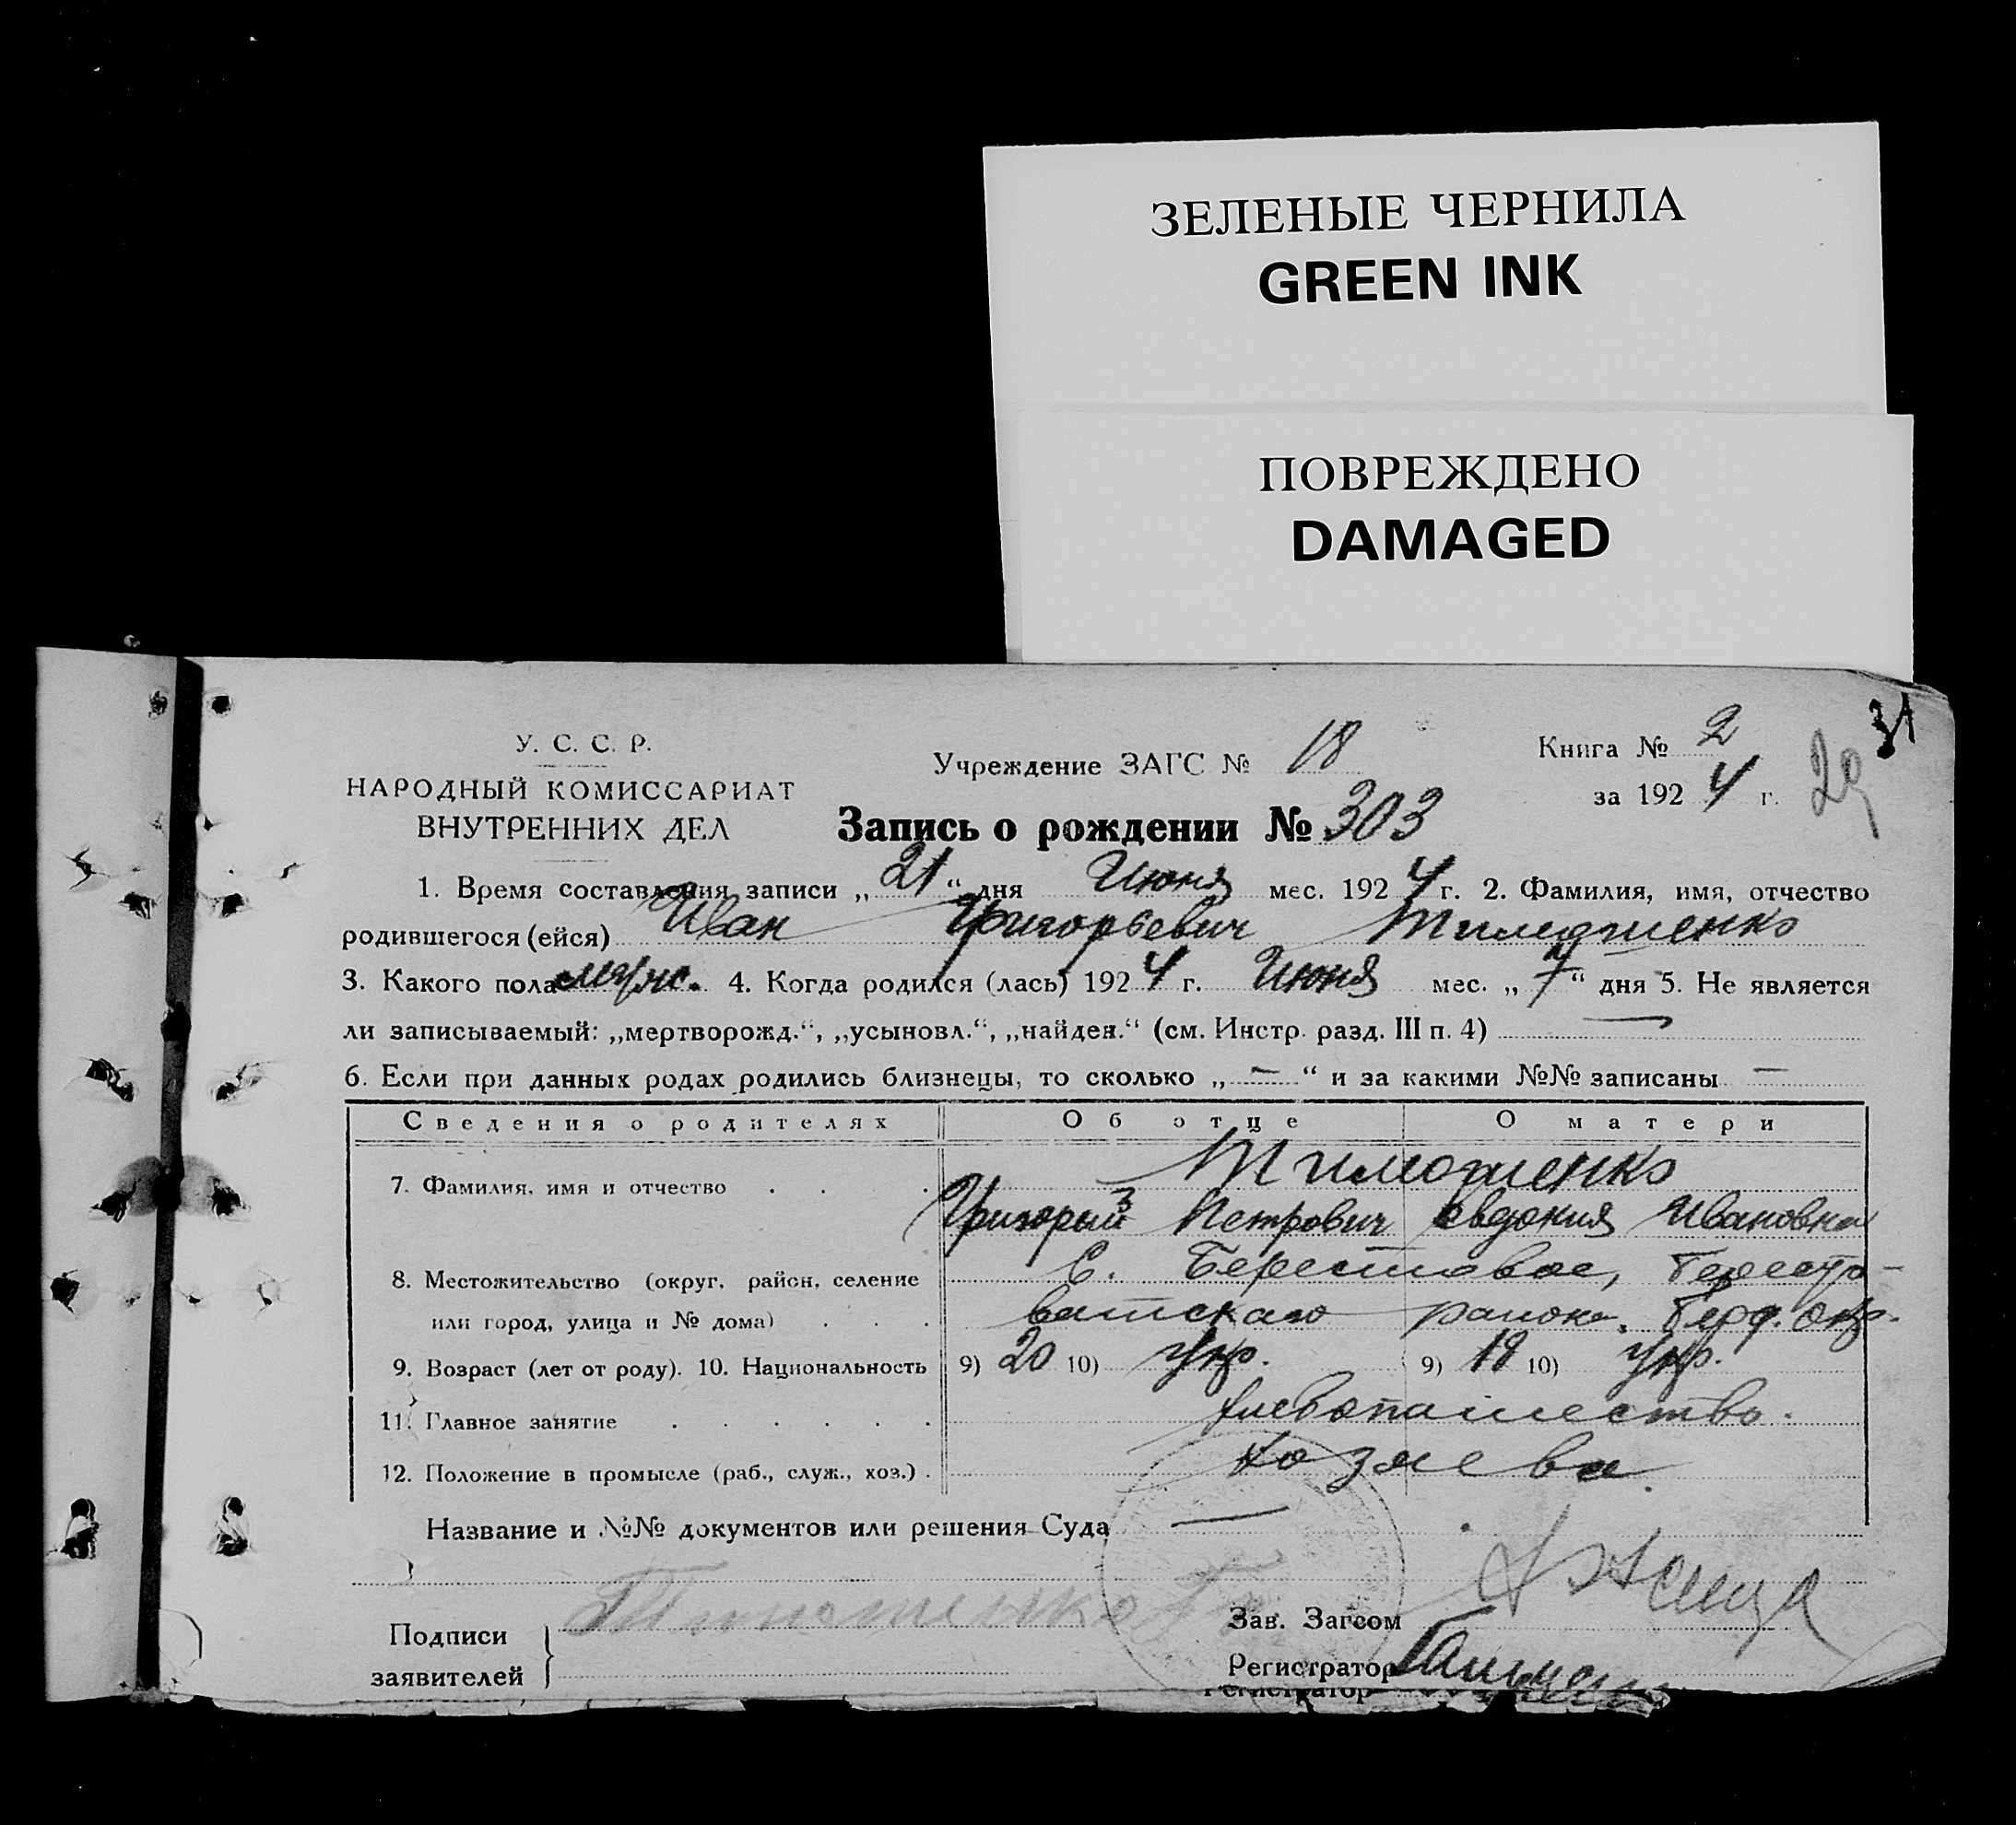 ЗЕЛЕНЫЕ ЧЕРНИЛА
GREEN INK
ПОВРЕЖДЕНО
DAMAGED
31
29
У. С. С. Р.
НАРОДНЫЙ КОМИССАРИАТ
ВНУТРЕННИХ ДЕЛ
Учреждение ЗАГС № 18
Книга № 2
за 1924 г.
Запись о рождении № 303
1. Время составления записи „21“ дня Июня мес. 1924 г. 2. Фамилия, имя, отчество
родившегося (ейся) Иван Григорьевич Тимошенко
3. Какого пола муж. 4. Когда родился (лась) 1924 г. Июня мес. „7“ дня 5. Не является
ли записываемый: „мертворожд.“, „усыновл.“, „найден.“ (см. Инстр. разд. III п. 4) —
6. Если при данных родах родились близнецы, то сколько „—“ и за какими №№ записаны —
Сведения о родителях Об отце О матери
Тимошенко
7. Фамилия, имя и отчество . . .
Григорый Петрович Евдокия Ивановна
8. Местожительство (округ, район, селение С. Берестовое, Бересто-
или город, улица и № дома) . . . ватского района, Берд. окр.
9. Возраст (лет от роду). 10. Национальность 9) 20 10) Укр. 9) 19 10) Укр.
11. Главное занятие . . . . . . хлебопашество.
12. Положение в промысле (раб., служ., хоз.) . хозяева.
Название и №№ документов или решения Суда —
Подписи
заявителей
Тимошенко
Зав. Загсом
Регистратор
Регистратор